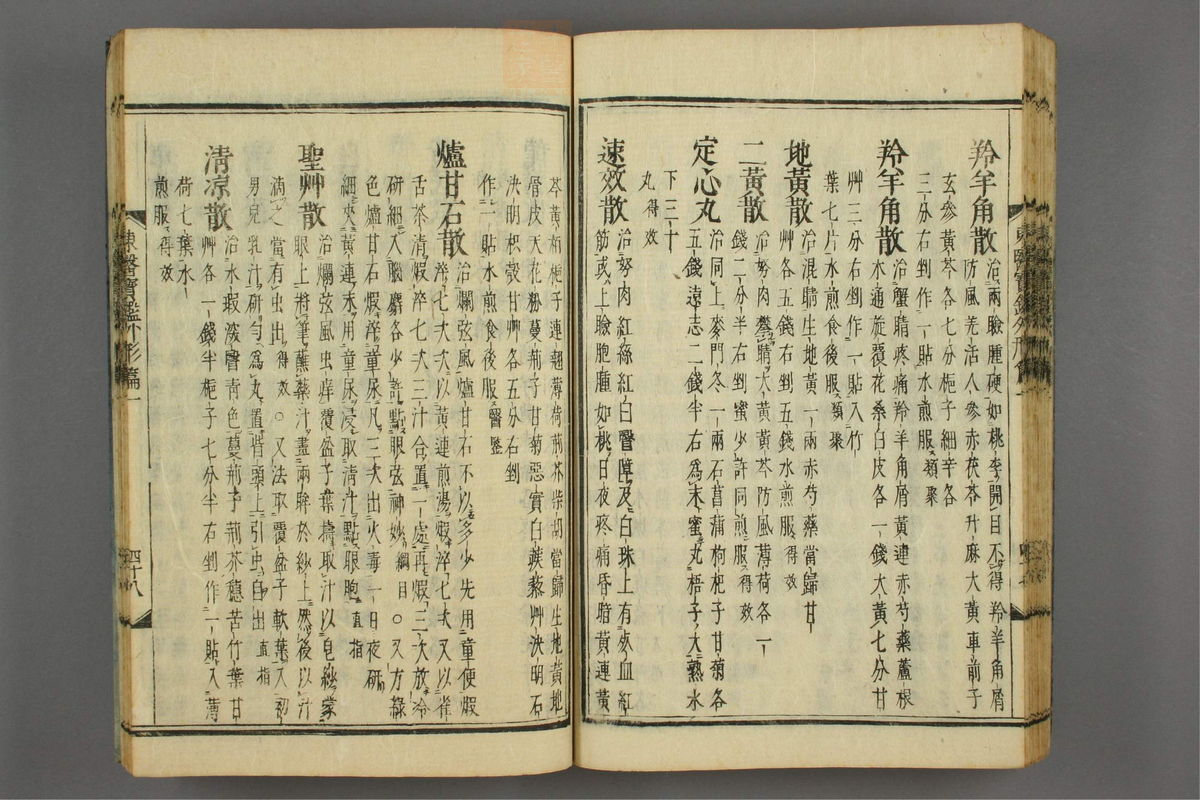 羚羊角散 治兩瞼腫硬如桃李開目不得羚羊角屑
防風羌活人參赤茯苓升麻大黃車前子
玄參黃芩各七分梔子細辛各
三分右剉作一貼水煎服類聚
羚羊角散 治蟹睛疼痛羚羊角屑黃連赤芍藥蘆根
木通旋覆花桑白皮各一錢大黃七分甘
艸三分右剉作一貼入竹
葉七片水煎食後服類聚
地黃散 治混睛生地黃一兩赤芍藥當歸甘
艸各五錢右剉五錢水煎服得效
二黃散 治胬肉攀睛大黃黃芩防風薄荷各一
錢二分半右剉蜜少許同煎服得效
定心丸 治同上麥門冬一兩石菖蒲枸杞子甘菊各
五錢遠志二錢半右爲末蜜丸梧子大熟水
下三十
丸得效
速效散 治努肉紅絲紅白瞖障及白珠上有死血紅
筋或上瞼胞腫如桃日夜疼痛昏暗黃連黃
芩黃栢梔子連翹薄荷荊芥柴胡當歸生地黃地
骨皮天花粉蔓荊子甘菊惡實白蒺藜艸決明石
決明枳殼甘艸各五分右剉
作一貼水煎食後服醫鑒
爐甘石散 治爛弦風爐甘石不以多少先用童便煆
淬七次次以黃連煎湯煆淬七次又以雀
舌茶清煆淬七次三汁合置一處再煆三次放冷
研細入腦麝各少許點眼弦神妙綱目○又方綠
色爐甘石煆淬童尿凡三次出火毒一日夜研
細夾黃連末用童尿浸取淸汁點眼胞直指
聖艸散 治爛弦風虫痒覆盆子葉擣取汁以皂紗蒙
眼上將筆蘸藥汁畫兩眸於紗上然後以汁
滴之當有虫出得效○又法取覆盆子軟葉入初
男兒乳汁研勻爲丸置眥頭上引虫自出直指
淸凉散 治冰瑕深瞖靑色蔓荊子荊芥穗苦竹葉甘
艸各一錢半梔子七分半右剉作一貼入薄
荷七葉水
煎服得效
東醫寶鑑外形篇一
四十八